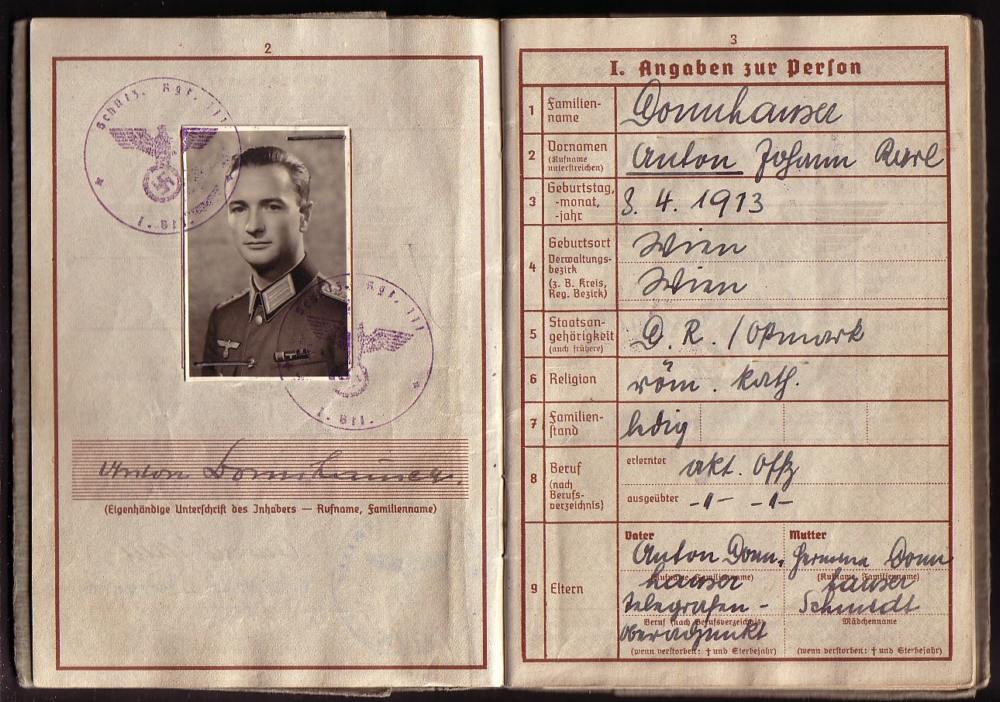 2
Schütz. Rgt. 111
Schütz. Rgt. 111
Anton Donnhauser.
(Eigenhändige Unterschrift des Inhabers — Rufname, Familienname)
3
I. Angaben zur Person
1 Familien-
name
Donnhauser
2 Vornamen
(Rufname
unterstreichen)
Anton Johann Karl
3 Geburtstag,
-monat,
-jahr
8. 4. 1913
4 Geburtsort
Wien
Verwaltungs-
bezirk
(z. B. Kreis,
Reg. Bezirk)
Wien
5 Staatsan-
gehörigkeit
(auch frühere)
D. R. / Ostmark
6 Religion
röm. kath.
7 Familien-
stand
ledig
8 Beruf
(nach
Berufs-
verzeichnis)
erlernter akt. Offz
ausgeübter -〃- -〃-
9 Eltern
Vater
Anton Donn-
hauser
(Rufname, Familienname)
Telegrafen-
oberadjunkt
Beruf (nach Berufsverzeichnis)
(wenn verstorben: † und Sterbejahr)
Mutter
Hermine Donn
hauser
(Rufname, Familienname)
Schmidt
Mädchenname
(wenn verstorben: † und Sterbejahr)